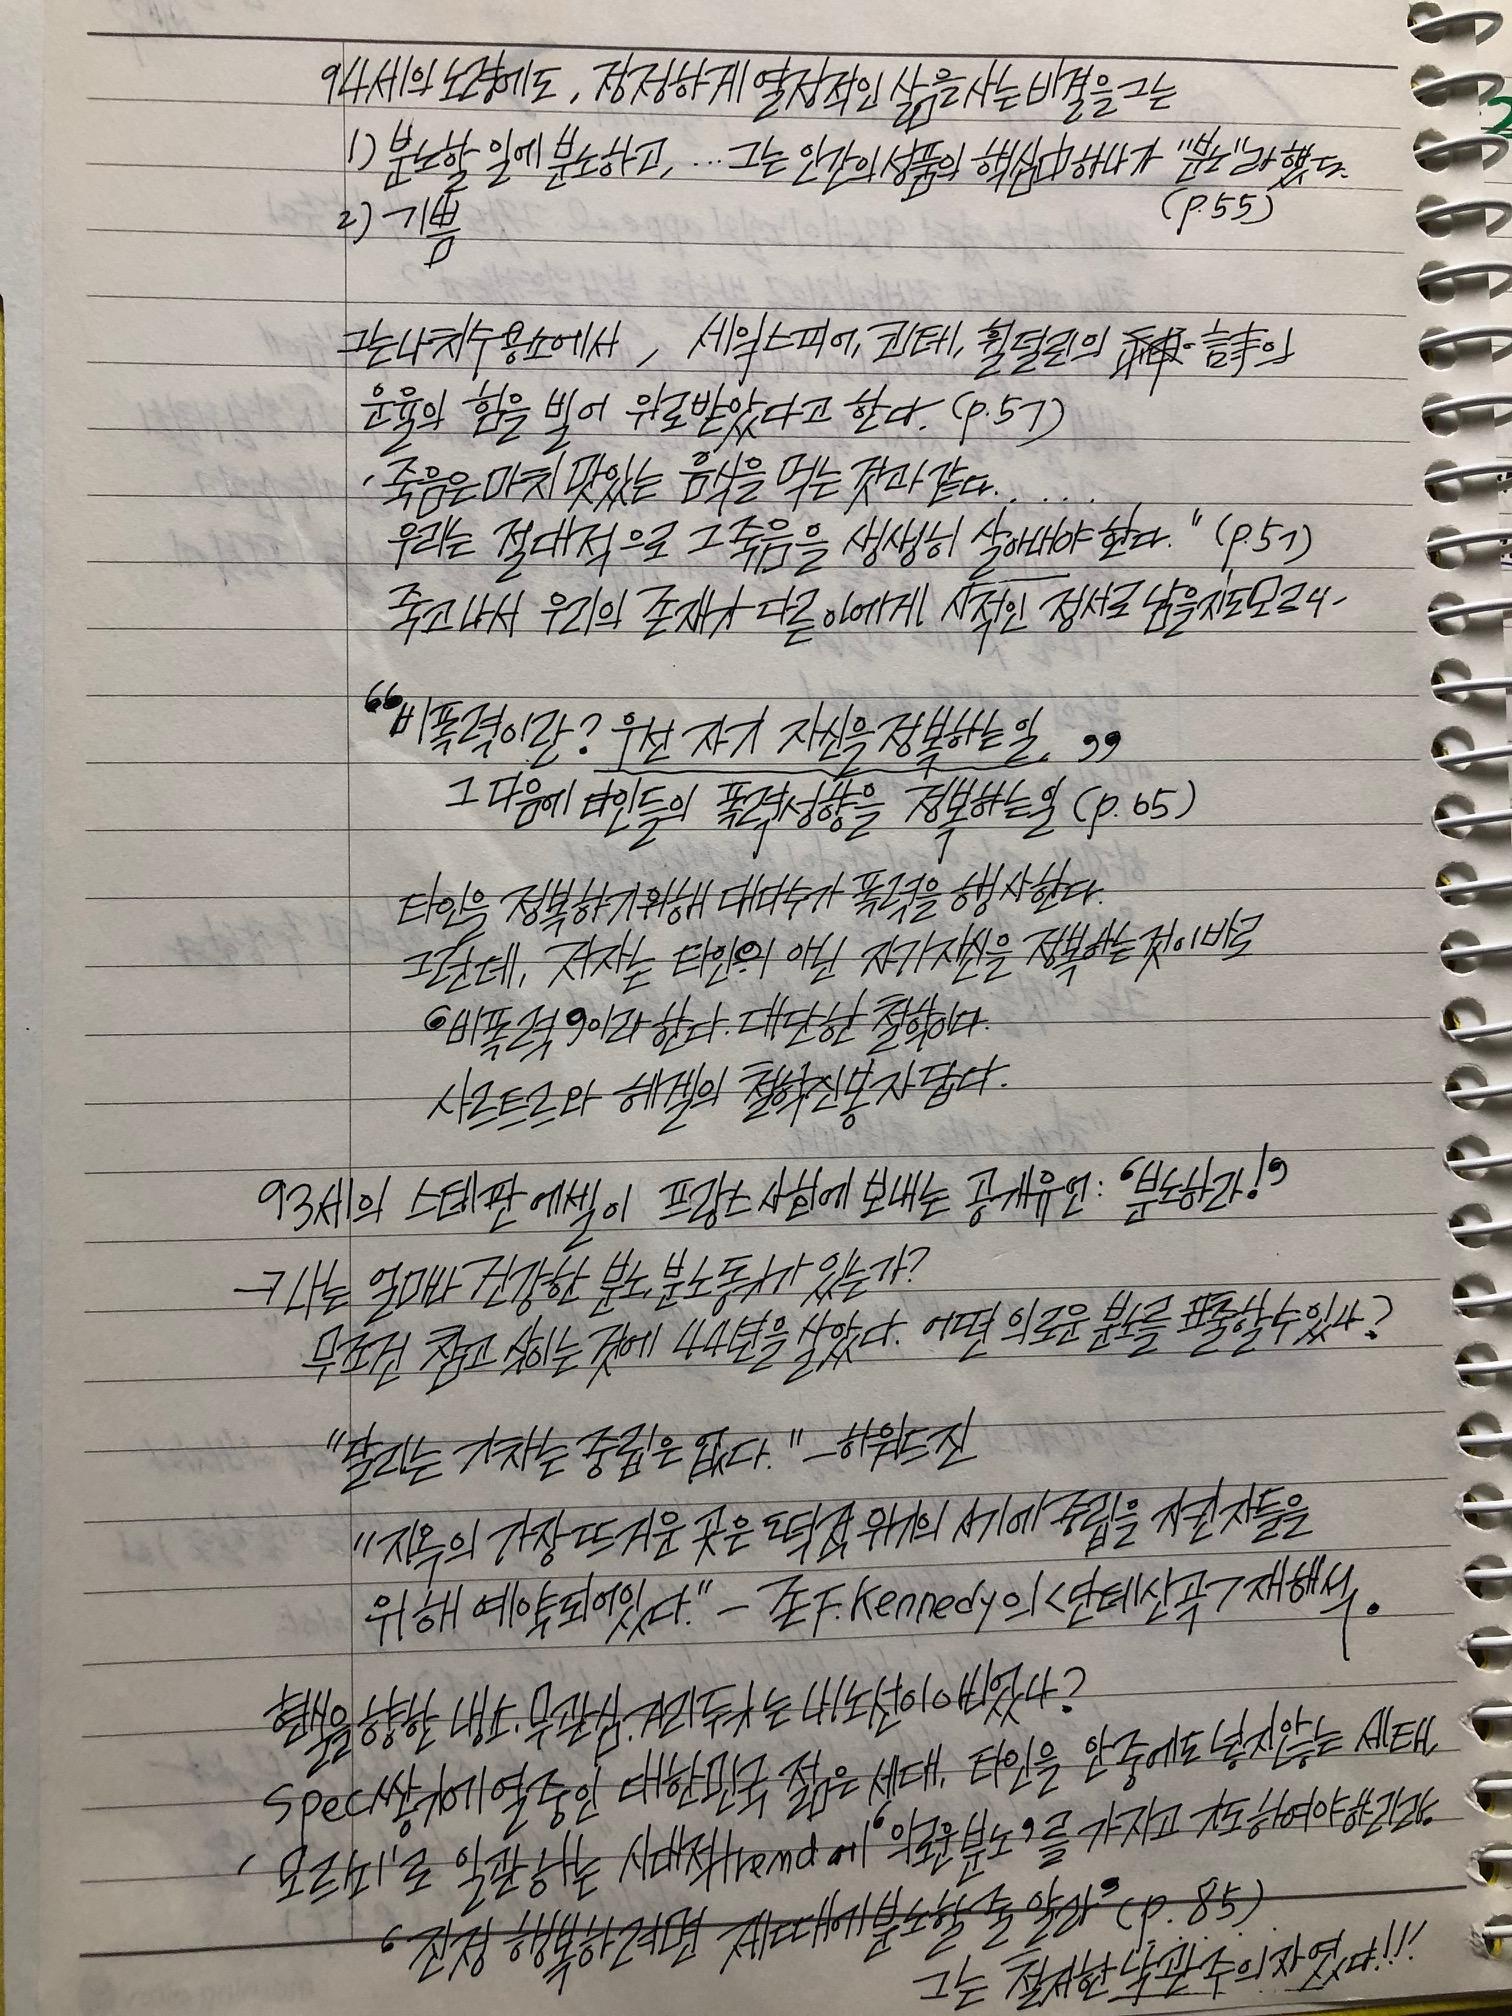 94세의 노령에도, 장정하게 열정적인 삶을 사는 비결을 그는
1) 분노할 일에 분노하고, ... 그는 인간의 성품의 핵심中 하나가 "분노"라 했다.
(p.55)
2) 기쁨
그는 나치수용소에서, 세익스피어, 괴테, 휠덜린의 詩의
운율의 힘을 빌어 위로받았다고 한다. (p.57)
'죽음은 마치 맛있는 음식을 먹는 것과 같다......
우리는 절대적으로 그 죽음을 생생히 살아내야 한다." (p.57)
죽고 나서 우리의 존재가 다른 이에게 시적인 정서로 남을지도 모르니-
"비폭력이란? 우선 자기 자신을 정복하는 일."
그 다음에 타인들의 폭력성향을 정복하는 일 (p.65)
타인을 정복하기 위해 대다수가 폭력을 행사한다.
그런데, 저자는 타인이 아닌 자기자신을 정복하는 것이 바로
'비폭력'이라 한다. 대단한 철학이다.
사르트르와 헤겔의 철학신봉자 답다.
93세의 스테판 에셀이 프랑스 사회에 보내는 공개유언: '분노하라!'
→ 나는 얼마나 건강한 분노, 분노동기가 있는가?
무조건 참고 삭이는 것에 44년을 살았다. 어떤 의로운 분노를 표출할 수 있나?
"달리는 기차는 중립은 없다." - 하워드 진
"지옥의 가장 뜨거운 곳은 도덕적 위기의 시기에 중립을 지킨 자들을
위해 예약되어있다." - 존 F. Kennedy의 <단테 신곡> 재해석.
행복을 향한 냉소, 무관심, 거리두기는 내 노선이 아니었나?
spec쌓기에 열중인 대한민국 젊은 세대, 타인을 안중에도 넣지 않는 세태,
'모르쇠'로 일관하는 시대적 trend에 '의로운 분노'를 가지고 기도하여야 하리라.
'진정 행복하려면 제때에 분노할 줄 알라' (p.85)
그는 철저한 낙관주의자였다!!!